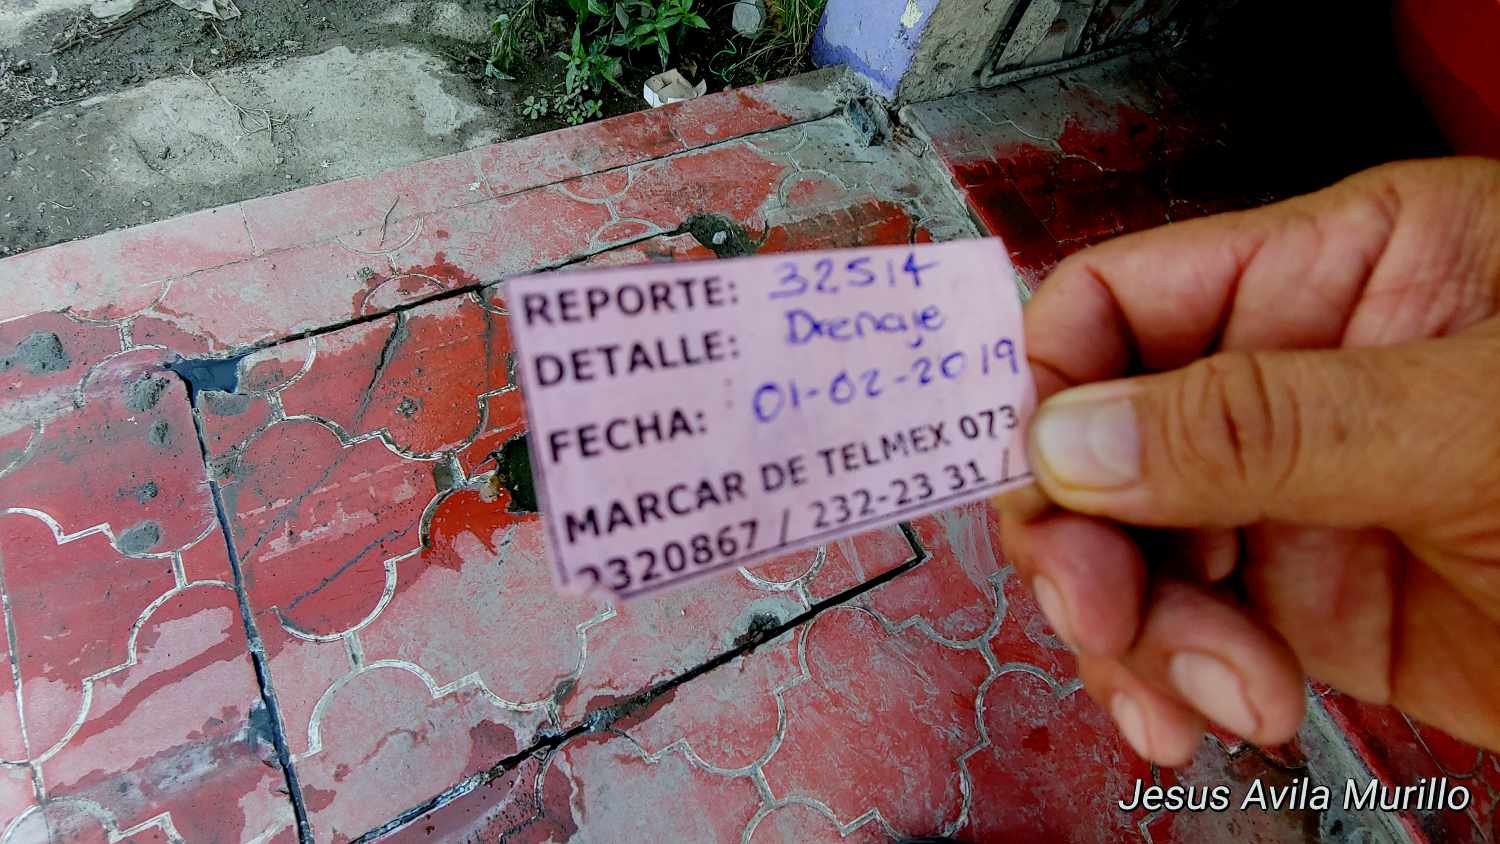 REPORTE: 32514
DETALLE: Drenaje
FECHA: 01-02-2019
MARCAR DE TELMEX 073
2320867 / 232-23 31 /
Jesus Avila Murillo